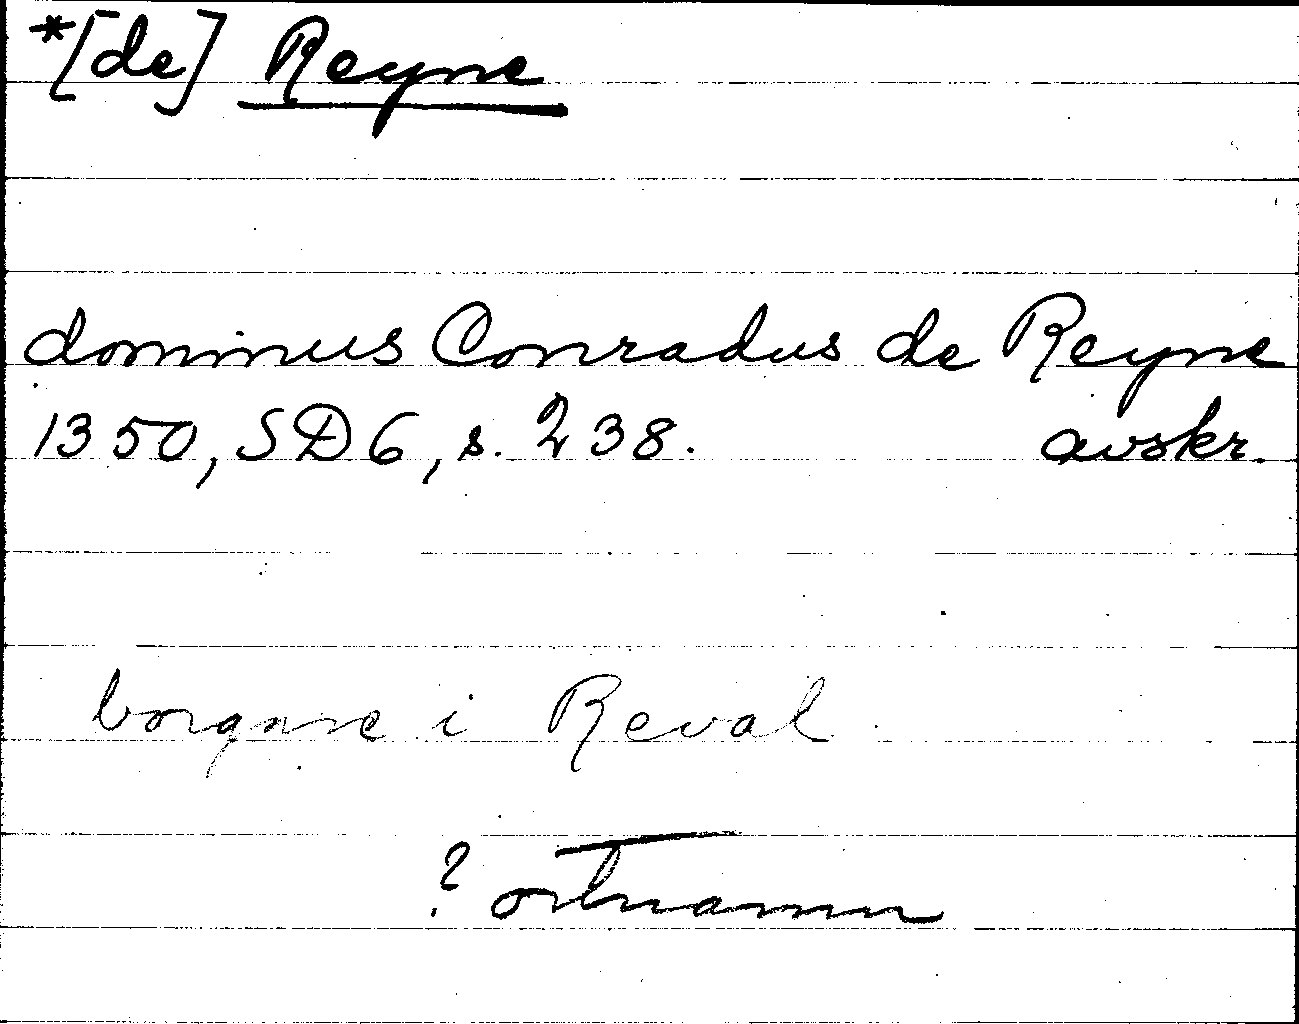 *[de] Reyne
dominus Conradus de Reyne
1350, SD6, s. 238. avskr.
borgare i Reval
? ortnamn